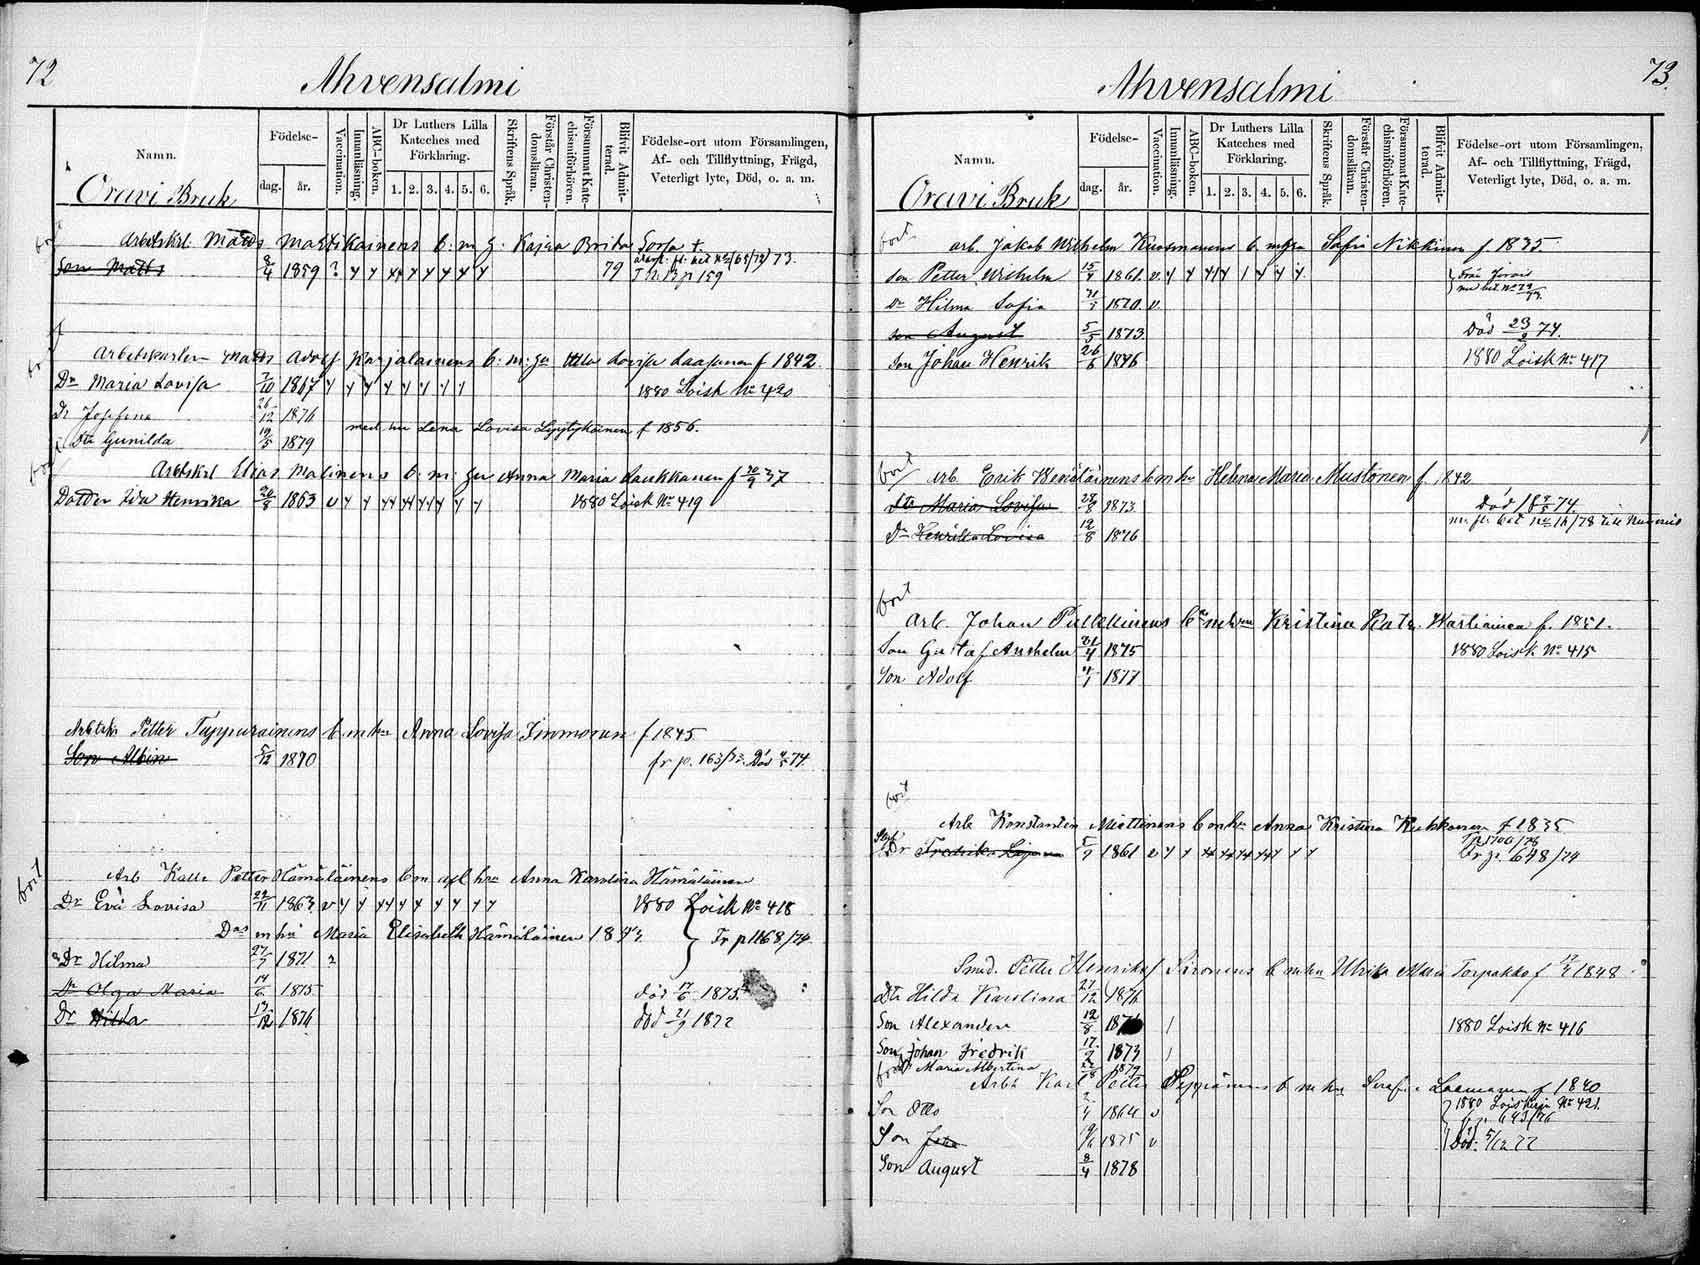 72
Ahvensalmi
Namn.
Födelse-
dag. år.
Vaccination.
Innanläsning.
ABC-boken.
Dr Luthers Lilla Kateches med Förklaring.
1. 2. 3. 4. 5. 6.
Skriftens Språk.
Förstår Christendomsläran.
Försummat Katechismiförhören.
Blifvit Admitterad.
Födelse-ort utom Församlingen, Af- och Tillflyttning, Frägd, Veterligt lyte, Död, o. a. m.
Oravi Bruk
Arbetskrl. Matts Martikainens b. m. h. Kajsa Brita Sorsa +
Son Matts 8/4 1859 ? 79
T N: 13 p 159
bort
Arbetskarlen Matts Adolf Karjalainens b: m: ha Ulla Lovisa Laasanen f 1842.
Dr Maria Lovisa 7/10 1867 1880 Loisk No 420
Dr Josefina 26/12 1876
med hu Lena Lovisa Lyytykäinen f 1856.
Dtr Gunilda 19/5 1879
Arbtskrl Elias Malinens b: m: hu Anna Maria Laukkanen f 30/9 37
Dotter Ida Henrika 20/8 1863 v 1880 Loisk No 419
Arbtsk. Petter Tappuraisens b m hu Anna Lovisa Immonen f 1845
Son Albin 5/12 1870 fr p. 163/72. Död 74.
bort
Arb Kalle Petter Hämäläinens b m afl hu Anna Karolina Hämäläinen
Dr Eva Lovisa 22/11 1863 v 1880 Loisk No 418
Das m hu Maria Elisabeth Hämäläinen 18
Fr p 1168/74
Dr Hilma 27/7 1871
Dr Olga Maria 14/6 1875 död 17/6 1875
Dr Hilda 13/12 1876 död 21/9 1877
73.
Ahvensalmi
Namn.
Födelse-
dag. år.
Vaccination.
Innanläsning.
ABC-boken.
Dr Luthers Lilla Kateches med Förklaring.
1. 2. 3. 4. 5. 6.
Skriftens Språk.
Förstår Christendomsläran.
Försummat Katechismiförhören.
Blifvit Admitterad.
Födelse-ort utom Församlingen, Af- och Tillflyttning, Frägd, Veterligt lyte, Död, o. a. m.
Oravi Bruk
bort
arb. Jakob Wilhelm Kuosmanens b. m hu Sofia Nikkinen f. 1835
son Petter Wilhelm 15/4 1861 v
Från Jorois
Dr Hilma Sofia 1870 v
son August 5/5 1873 Död 23/2 74.
Son Johan Henrik 26/6 1876 1880 Loisk No 417
bort
Arb. Erik Heiskainens b m hu Helena Maria Mustonen f 1842
Dtr Maria Lovisa 28/8 1873 Död 74.
Dr Henrika Lovisa 12/8 1876
bort
Arb. Johan Pulkkinens b m hu Kristina Katr. Wartiainen f. 1851.
Son Gustaf Anshelm 21/4 1875 1880 Loisk No 415
Son Adolf 4/1 1877
bort
Arb Konstantin Miettinens b m hu Anna Kristina Kukkonen f 1835
Dr Fredrika 5/9 1861 v
fr p. 648/74
Smed. Petter Henrik Sironens b m hu Ulrika Maria Torpakko f 1848
Dtr Hilda Karolina 21/12 1876
Son Alexander 12/8 1880 Loisk No 416
Son Johan Fredrik 17/2 1873
Dr Maria Albertina 1879
Arb. Karl Petter Seppänens b m hu Serafia Laamanen f 1840
Son Otto 2/4 1864 v 1880 Loiskirja No 421.
Son 1875 v Död 5/12 77
Son August 8/4 1878